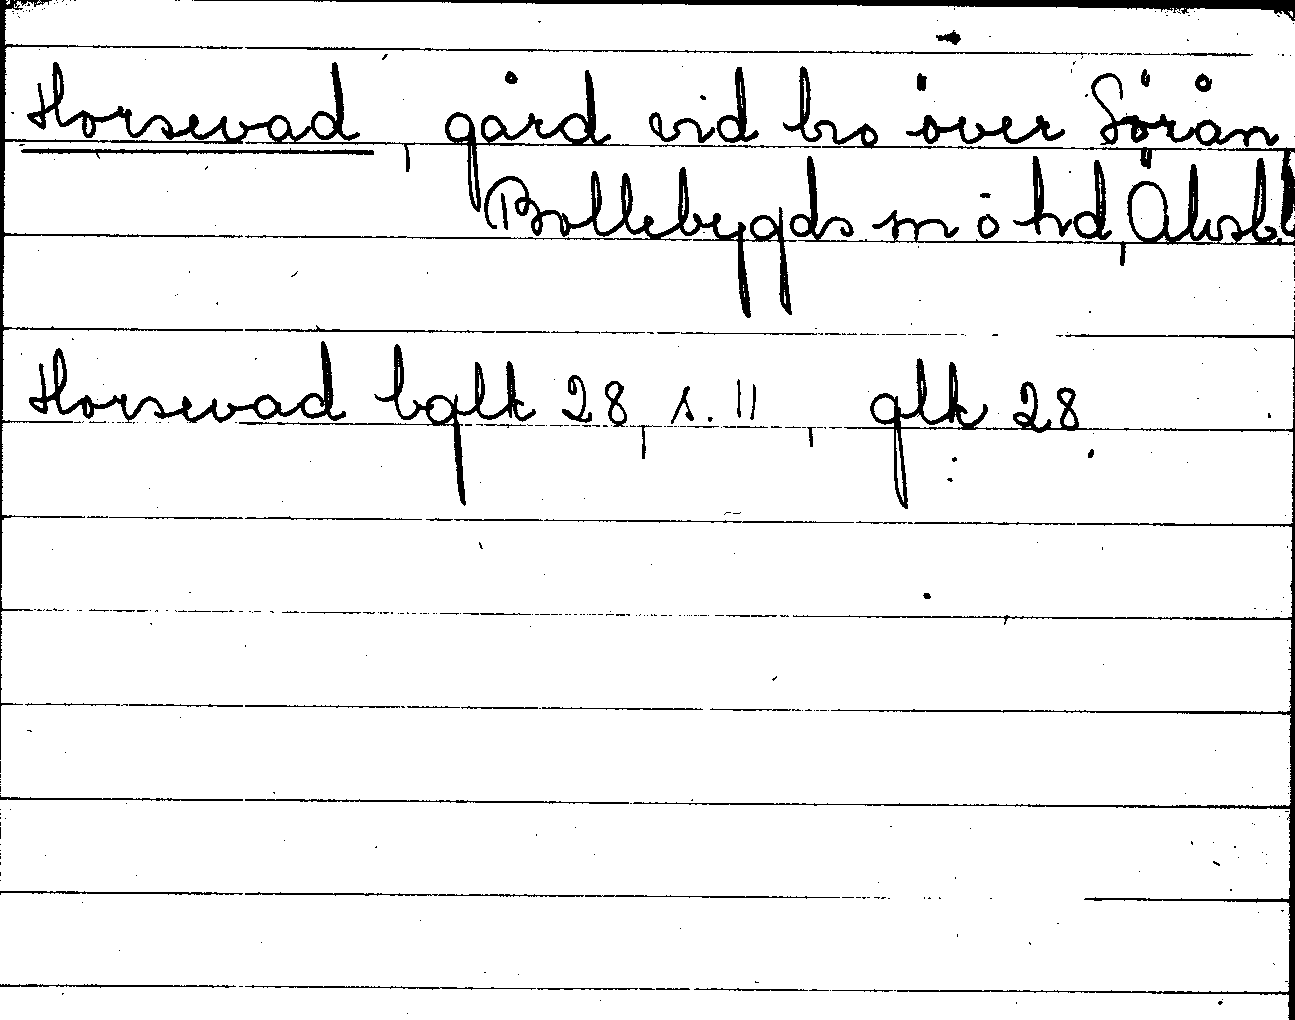 Horsevad, gård vid bro över Sörån
Bollebygds sn o hd, Älvsbl
Horsevad bglk 28, s. 11, glk 28.